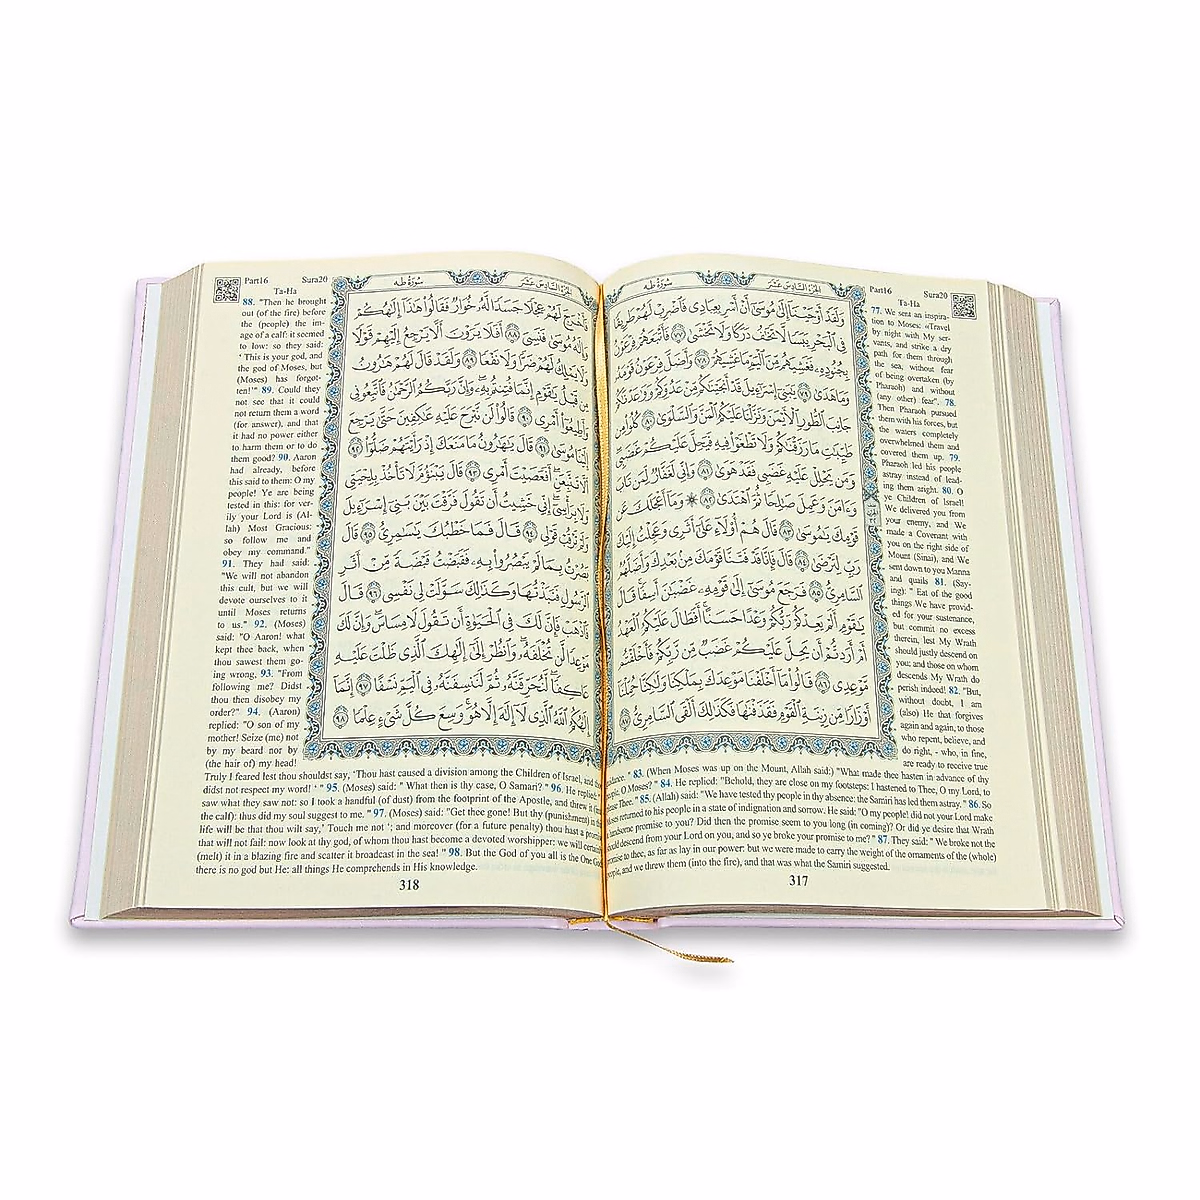 Part16 Sura20
Ta-Ha
سُورَةُ طه
الجُزْءُ السَّادِسَ عَشَرَ
وَلَقَدْ أَوْحَيْنَا إِلَىٰ مُوسَىٰ أَنْ أَسْرِ بِعِبَادِي فَاضْرِبْ لَهُمْ طَرِيقًا
فِي الْبَحْرِ يَبَسًا لَا تَخَافُ دَرَكًا وَلَا تَخْشَىٰ ٧٧ فَأَتْبَعَهُمْ فِرْعَوْنُ
بِجُنُودِهِ فَغَشِيَهُمْ مِنَ الْيَمِّ مَا غَشِيَهُمْ ٧٨ وَأَضَلَّ فِرْعَوْنُ قَوْمَهُ
وَمَا هَدَىٰ ٧٩ يَا بَنِي إِسْرَائِيلَ قَدْ أَنْجَيْنَاكُمْ مِنْ عَدُوِّكُمْ وَوَاعَدْنَاكُمْ
جَانِبَ الطُّورِ الْأَيْمَنَ وَنَزَّلْنَا عَلَيْكُمُ الْمَنَّ وَالسَّلْوَىٰ ٨٠ كُلُوا مِنْ
طَيِّبَاتِ مَا رَزَقْنَاكُمْ وَلَا تَطْغَوْا فِيهِ فَيَحِلَّ عَلَيْكُمْ غَضَبِي
وَمَنْ يَحْلِلْ عَلَيْهِ غَضَبِي فَقَدْ هَوَىٰ ٨١ وَإِنِّي لَغَفَّارٌ لِمَنْ تَابَ
وَآمَنَ وَعَمِلَ صَالِحًا ثُمَّ اهْتَدَىٰ ٨٢ وَمَا أَعْجَلَكَ عَنْ
قَوْمِكَ يَا مُوسَىٰ ٨٣ قَالَ هُمْ أُولَاءِ عَلَىٰ أَثَرِي وَعَجِلْتُ إِلَيْكَ
رَبِّ لِتَرْضَىٰ ٨٤ قَالَ فَإِنَّا قَدْ فَتَنَّا قَوْمَكَ مِنْ بَعْدِكَ وَأَضَلَّهُمُ
السَّامِرِيُّ ٨٥ فَرَجَعَ مُوسَىٰ إِلَىٰ قَوْمِهِ غَضْبَانَ أَسِفًا قَالَ
يَا قَوْمِ أَلَمْ يَعِدْكُمْ رَبُّكُمْ وَعْدًا حَسَنًا أَفَطَالَ عَلَيْكُمُ الْعَهْدُ
أَمْ أَرَدْتُمْ أَنْ يَحِلَّ عَلَيْكُمْ غَضَبٌ مِنْ رَبِّكُمْ فَأَخْلَفْتُمْ
مَوْعِدِي ٨٦ قَالُوا مَا أَخْلَفْنَا مَوْعِدَكَ بِمَلْكِنَا وَلَٰكِنَّا حُمِّلْنَا
أَوْزَارًا مِنْ زِينَةِ الْقَوْمِ فَقَذَفْنَاهَا فَكَذَٰلِكَ أَلْقَى السَّامِرِيُّ ٨٧
77. We sent an inspira-
tion to Moses: «Travel
by night with My ser-
vants, and strike a dry
path for them through
the sea, without fear
of being overtaken (by
Pharaoh) and without
(any other) fear". 78.
Then Pharaoh pursued
them with his forces, but
the waters completely
overwhelmed them and
covered them up. 79.
Pharaoh led his people
astray instead of lead-
ing them aright. 80. O
ye Children of Israel!
We delivered you from
your enemy, and We
made a Covenant with
you on the right side of
Mount (Sinai), and We
sent down to you Manna
and quails 81. (Say-
ing): " Eat of the good
things We have provid-
ed for your sustenance,
but commit no excess
therein, lest My Wrath
should justly descend on
you: and those on whom
descends My Wrath do
perish indeed! 82. "But,
without doubt, I am
(also) He that forgives
again and again, to those
who repent, believe, and
do right, - who, in fine,
are ready to receive true
guidance. " 83. (When Moses was up on the Mount, Allah said:) "What made thee hasten in advance of thy
people, O Moses? " 84. He replied: "Behold, they are close on my footsteps: I hastened to Thee, O my Lord, to
please Thee. " 85. (Allah) said: "We have tested thy people in thy absence: the Samiri has led them astray. " 86. So
Moses returned to his people in a state of indignation and sorrow. He said: "O my people! did not your Lord make
a handsome promise to you? Did then the promise seem to you long (in coming)? Or did ye desire that Wrath
should descend from your Lord on you, and so ye broke your promise to me? " 87. They said: " We broke not the
promise to thee, as far as lay in our power: but we were made to carry the weight of the ornaments of the (whole)
people, and we threw them (into the fire), and that was what the Samiri suggested.
317
Part16 Sura20
Ta-Ha
سُورَةُ طه
الجُزْءُ السَّادِسَ عَشَرَ
فَأَخْرَجَ لَهُمْ عِجْلًا جَسَدًا لَهُ خُوَارٌ فَقَالُوا هَٰذَا إِلَٰهُكُمْ
وَإِلَٰهُ مُوسَىٰ فَنَسِيَ ٨٨ أَفَلَا يَرَوْنَ أَلَّا يَرْجِعُ إِلَيْهِمْ قَوْلًا
وَلَا يَمْلِكُ لَهُمْ ضَرًّا وَلَا نَفْعًا ٨٩ وَلَقَدْ قَالَ لَهُمْ هَارُونُ
مِنْ قَبْلُ يَا قَوْمِ إِنَّمَا فُتِنْتُمْ بِهِ وَإِنَّ رَبَّكُمُ الرَّحْمَٰنُ فَاتَّبِعُونِي
وَأَطِيعُوا أَمْرِي ٩٠ قَالُوا لَنْ نَبْرَحَ عَلَيْهِ عَاكِفِينَ حَتَّىٰ يَرْجِعَ
إِلَيْنَا مُوسَىٰ ٩١ قَالَ يَا هَارُونُ مَا مَنَعَكَ إِذْ رَأَيْتَهُمْ ضَلُّوا ٩٢
أَلَّا تَتَّبِعَنِ أَفَعَصَيْتَ أَمْرِي ٩٣ قَالَ يَبْنَؤُمَّ لَا تَأْخُذْ بِلِحْيَتِي
وَلَا بِرَأْسِي إِنِّي خَشِيتُ أَنْ تَقُولَ فَرَّقْتَ بَيْنَ بَنِي إِسْرَائِيلَ
وَلَمْ تَرْقُبْ قَوْلِي ٩٤ قَالَ فَمَا خَطْبُكَ يَا سَامِرِيُّ ٩٥ قَالَ
بَصُرْتُ بِمَا لَمْ يَبْصُرُوا بِهِ فَقَبَضْتُ قَبْضَةً مِنْ أَثَرِ
الرَّسُولِ فَنَبَذْتُهَا وَكَذَٰلِكَ سَوَّلَتْ لِي نَفْسِي ٩٦ قَالَ
فَاذْهَبْ فَإِنَّ لَكَ فِي الْحَيَاةِ أَنْ تَقُولَ لَا مِسَاسَ وَإِنَّ لَكَ
مَوْعِدًا لَنْ تُخْلَفَهُ وَانْظُرْ إِلَىٰ إِلَٰهِكَ الَّذِي ظَلْتَ عَلَيْهِ
عَاكِفًا لَنُحَرِّقَنَّهُ ثُمَّ لَنَنْسِفَنَّهُ فِي الْيَمِّ نَسْفًا ٩٧ إِنَّمَا
إِلَٰهُكُمُ اللَّهُ الَّذِي لَا إِلَٰهَ إِلَّا هُوَ وَسِعَ كُلَّ شَيْءٍ عِلْمًا ٩٨
88. "Then he brought
out (of the fire) before
the (people) the im-
age of a calf: it seemed
to low: so they said:
' This is your god, and
the god of Moses, but
(Moses) has forgot-
ten!'" 89. Could they
not see that it could
not return them a word
(for answer), and that
it had no power either
to harm them or to do
them good? 90. Aaron
had already, before
this said to them: O my
people! Ye are being
tested in this: for ver-
ily your Lord is (Al-
lah) Most Gracious:
so follow me and
obey my command."
91. They had said:
"We will not abandon
this cult, but we will
devote ourselves to it
until Moses returns
to us." 92. (Moses)
said: "O Aaron! what
kept thee back, when
thou sawest them go-
ing wrong, 93. "From
following me? Didst
thou then disobey my
order?" 94. (Aaron)
replied: "O son of my
mother! Seize (me) not
by my beard nor by
(the hair of) my head!
Truly I feared lest thou shouldst say, 'Thou hast caused a division among the Children of Israel, and thou
didst not respect my word! ' " 95. (Moses) said: " What then is thy case, O Samari? " 96. He replied: "
saw what they saw not: so I took a handful (of dust) from the footprint of the Apostle, and threw it
the calf): thus did my soul suggest to me. " 97. (Moses) said: "Get thee gone! But thy (punishment) in this
life will be that thou wilt say,' Touch me not '; and moreover (for a future penalty) thou hast a promise
that will not fail: now look at thy god, of whom thou hast become a devoted worshipper: we will certainly
(melt) it in a blazing fire and scatter it broadcast in the sea! " 98. But the God of you all is the One God
there is no god but He: all things He comprehends in His knowledge.
318